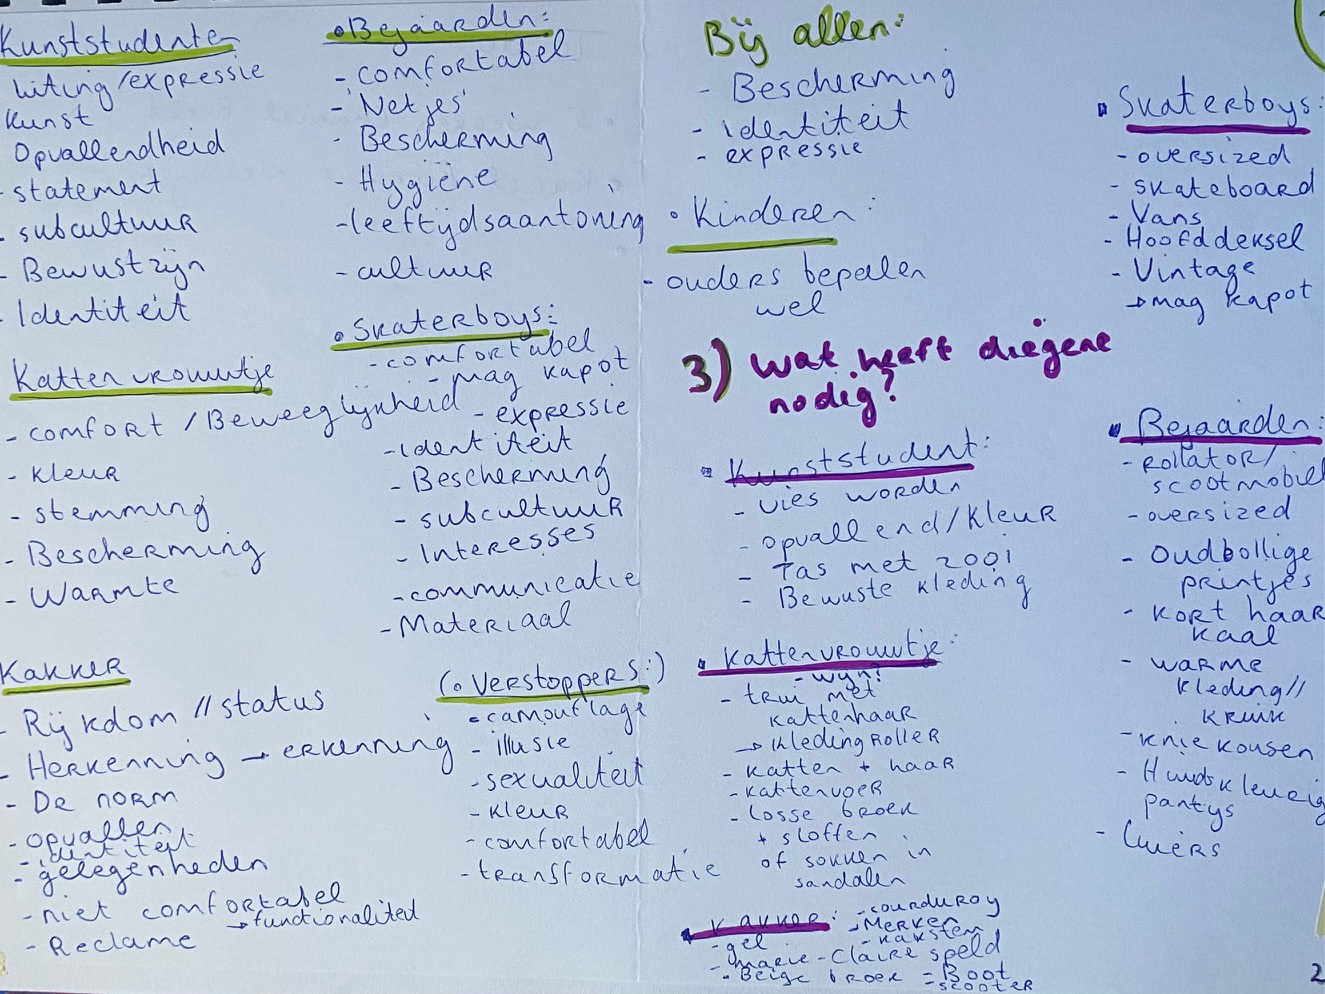 Kunststudenten
uiting/expressie
Kunst
Opvallendheid
- statement
- subcultuur
- Bewustzijn
- Identiteit
Kattenvrouwtje
- comfort / Beweeglijkheid
- kleur
- stemming
- Bescherming
- Warmte
Kakker
- Rijkdom // status
- Herkenning → erkenning
- De norm
- opvallen
- identiteit
- gelegenheden
- niet comfortabel
→ functionaliteit
- Reclame
• Bejaarden:
- comfortabel
- 'Netjes'
- Bescherming
- Hygiëne
- leeftijdsaantoning
- cultuur
• Skaterboys:
- comfortabel
- mag kapot
- expressie
- identiteit
- Bescherming
- subcultuur
- Interesses
- communicatie
- Materiaal
(• Verstoppers:)
• camouflage
- illusie
- sexualiteit
- kleur
- comfortabel
- transformatie
Bij allen:
- Bescherming
- identiteit
- expressie
• Kinderen:
- ouders bepalen
wel
3) wat heeft diegene
nodig?
Kunststudent:
- vies worden
- opvallend/kleur
- Tas met zooi
- Bewuste kleding
Kattenvrouwtje:
- wijn?
- trui met
kattenhaar
→ kledingroller
- katten + haar
- kattenvoer
- losse broek
+ sloffen
of sokken in
sandalen
Kakker:
- courduroy
- Merken
- kakstem
- gel
- Marie-Claire speld
- Beige broek
- Boot
- scooter
Skaterboys:
- oversized
- skateboard
- Vans
- Hoofddeksel
- Vintage
→ mag kapot
Bejaarden:
- rollator/
scootmobiel
- oversized
- Oudbollige
printjes
- kort haar
kaal
- warme
kleding//
kruik
- knie kousen
- Huidskleurig
pantys
- luiers
2